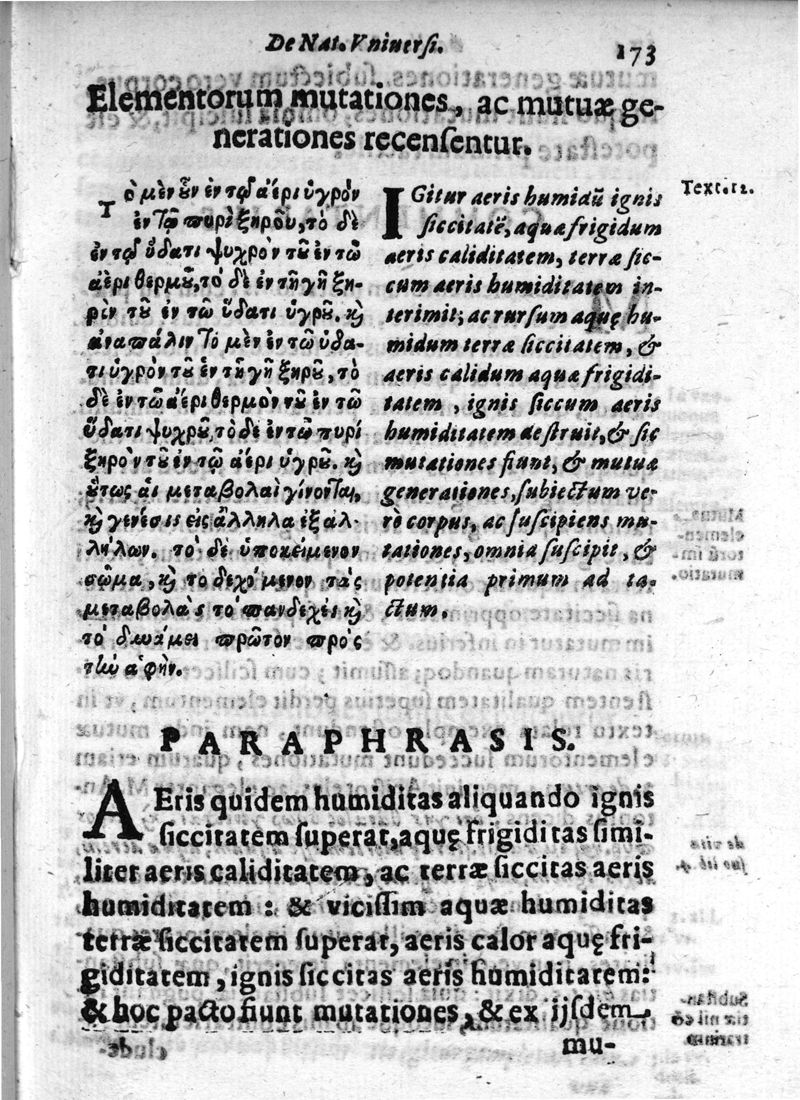 De Nat. Vniuersi.
173
Elementorum mutationes, ac mutuæ ge-
nerationes recensentur.
Τὸ μὲν οὖν ἐν τῷ ἀέρι ὑγρὸν
ἐν τῷ πυρὶ ξηροῦ, τὸ δὲ
ἐν τῷ ὕδατι ψυχρὸν τοῦ ἐν τῶ
ἀέρι θερμοῦ, τὸ δὲ ἐν τῇ γῇ ξη-
ρὶν τοῦ ἐν τῶ ὕδατι ὑγροῦ. καὶ
ἀναπάλιν τὸ μὲν ἐν τῶ ὕδα-
τι ὑγρὸν τοῦ ἐν τῇ γῇ ξηροῦ, τὸ
δὲ ἐν τῶ ἀέρι θερμὸν τοῦ ἐν τῶ
ὕδατι ψυχροῦ, τὸ δὲ ἐν τῶ πυρὶ
ξηρὸν τοῦ ἐν τῷ ἀέρι ὑγροῦ. καὶ
οὕτως ἁι μεταβολαὶ γίνονται,
καὶ γενέσις εἰς ἄλληλα ἐξ ἀλ-
λήλων. τὸ δὲ ὑποκείμενον
σῶμα, καὶ τὸ δεχόμενον τὰς
μεταβολὰς τὸ πανδεχὲς καὶ
τὸ δυνάμει πρῶτον πρὸς
τὴν ἁφὴν.
IGitur aeris humidũ ignis
siccitatẽ, aquæ frigidum
aeris caliditatem, terræ sic-
cum aeris humiditatem in-
terimit; ac rursum aquę hu-
midum terræ siccitatem, &
aeris calidum aquæ frigidi-
tatem, ignis siccum aeris
humiditatem destruit, & sic
mutationes fiunt, & mutuæ
generationes, subiectum ve-
rò corpus, ac suscipiens mu-
tationes, omnia suscipit, &
potentia primum ad ta-
ctum.
Text. 12.
PARAPHRASIS.
AEris quidem humiditas aliquando ignis
siccitatem superat, aquę frigiditas simi-
liter aeris caliditatem, ac terræ siccitas aeris
humiditatem: & vicissim aquæ humiditas
terræ siccitatem superat, aeris calor aquę fri-
giditatem, ignis siccitas aeris humiditatem:
& hoc pacto fiunt mutationes, & ex ijsdem
mu-